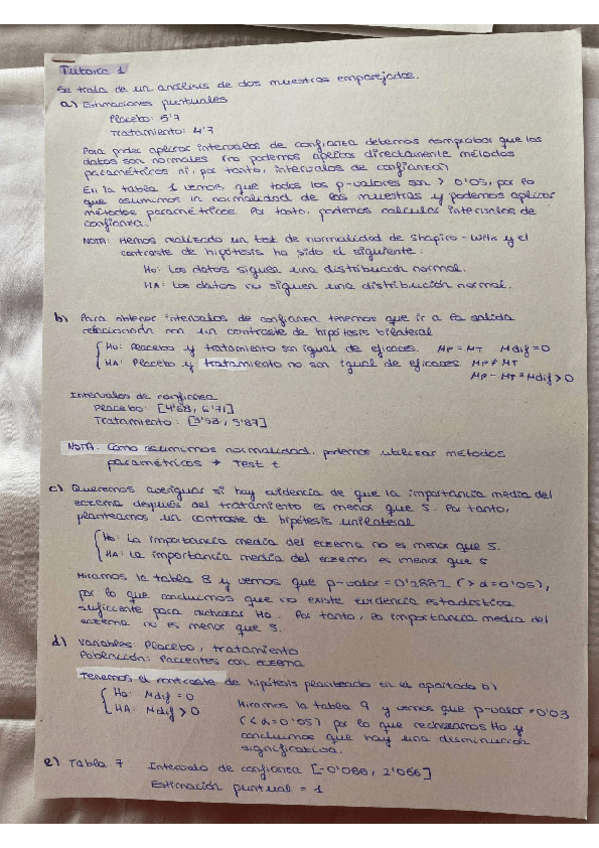 Tutoría 1
Se trata de un análisis de dos muestras emparejadas.
a) Estimaciones puntuales
Placebo: 5'7
Tratamiento: 4'7
Para poder aplicar intervalos de confianza debemos comprobar que los
datos son normales (no podemos aplicar directamente métodos
paramétricos ni, por tanto, intervalos de confianza)
En la tabla 1 vemos que todos los p-valores son > 0'05, por lo
que asumimos la normalidad de las muestras y podemos aplicar
métodos paramétricos. Por tanto, podemos calcular intervalos de
confianza.
NOTA: Hemos realizado un test de normalidad de Shapiro-Wilk y el
contraste de hipótesis ha sido el siguiente.
H0: Los datos siguen una distribución normal.
HA: Los datos no siguen una distribución normal.
b) Para obtener intervalos de confianza tenemos que ir a la salida
relacionada con un contraste de hipótesis bilateral
H0: Placebo y tratamiento son igual de eficaces. μP = μT μdif = 0
HA: Placebo y tratamiento no son igual de eficaces μP ≠ μT
μP - μT = μdif > 0
Intervalos de confianza
Placebo: [4'68, 6'71]
Tratamiento: [3'58, 5'87]
NOTA. Como asumimos normalidad, podemos utilizar métodos
paramétricos → Test t.
c) Queremos averiguar si hay evidencia de que la importancia media del
eczema después del tratamiento es menor que 5. Por tanto,
planteamos un contraste de hipótesis unilateral
H0: La importancia media del eczema no es menor que 5.
HA: La importancia media del eczema es menor que 5
Miramos la tabla 8 y vemos que p-valor = 0'2882 (> α = 0'05),
por lo que concluimos que no existe evidencia estadística
suficiente para rechazar H0. Por tanto, la importancia media del
eczema no es menor que 5.
d) Variables: Placebo, tratamiento
Población: Pacientes con eczema
Tenemos el contraste de hipótesis planteado en el apartado b)
H0: μdif = 0 Miramos la tabla 9 y vemos que p-valor = 0'03
HA: μdif > 0 (< α = 0'05) por lo que rechazamos H0 y
concluimos que hay una disminución
significativa.
e) Tabla 7 Intervalo de confianza [-0'066, 2'066]
Estimación puntual = 1